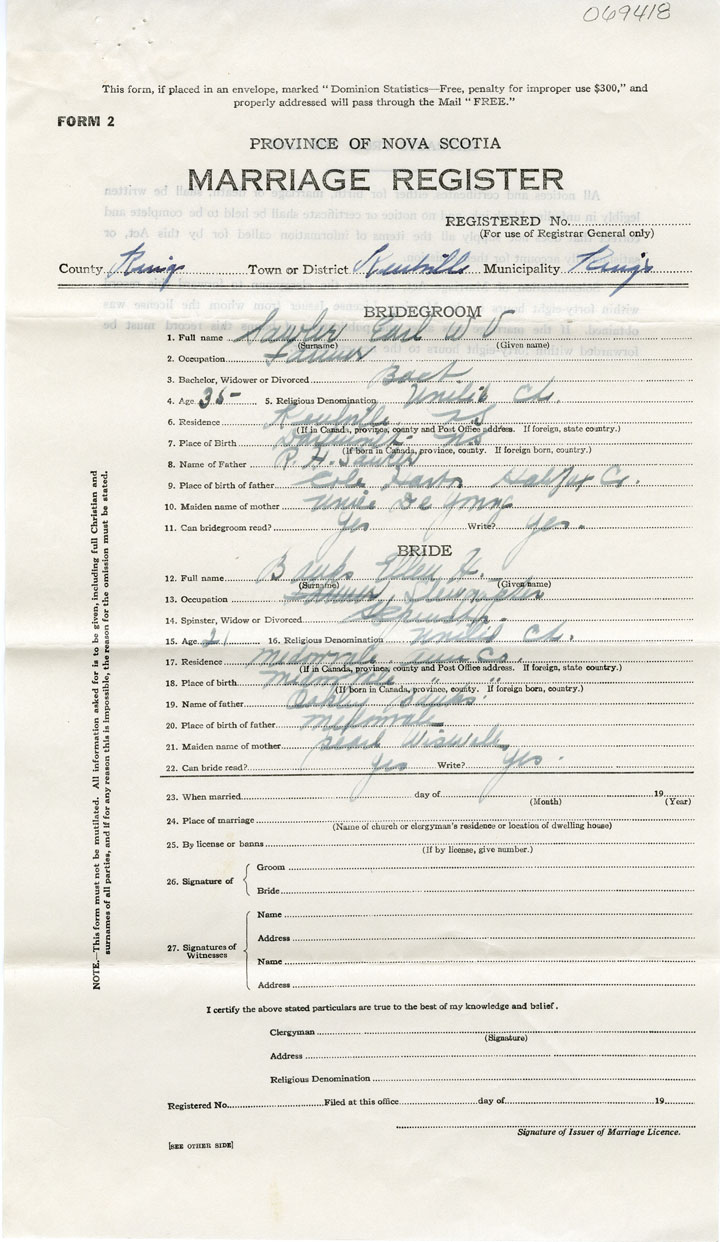 069418
This form, if placed in an envelope, marked " Dominion Statistics—Free, penalty for improper use $300," and
properly addressed will pass through the Mail " FREE."
FORM 2
PROVINCE OF NOVA SCOTIA
MARRIAGE REGISTER
REGISTERED No.
(For use of Registrar General only)
County Kings Town or District Kentville Municipality Kings
BRIDEGROOM
1. Full name Sawler Earl W V
(Surname) (Given name)
2. Occupation Farmer
3. Bachelor, Widower or Divorced Bach
4. Age 35 5. Religious Denomination United Ch.
6. Residence Kentville NS
(If in Canada, province, county and Post Office address. If foreign, state country.)
7. Place of Birth NS
(If born in Canada, province, county. If foreign born, country.)
8. Name of Father P. H. Sawler
9. Place of birth of father Cole Harbr Halifax Co.
10. Maiden name of mother De Young
11. Can bridegroom read? Yes Write? Yes.
BRIDE
12. Full name Banks Ellen H.
(Surname) (Given name)
13. Occupation
14. Spinster, Widow or Divorced Spinster
15. Age 21 16. Religious Denomination United Ch.
17. Residence Melvern Sq
(If in Canada, province, county and Post Office address. If foreign, state country.)
18. Place of birth " "
(If born in Canada, province, county. If foreign born, country.)
19. Name of father Banks
20. Place of birth of father
21. Maiden name of mother Pearl
22. Can bride read? Yes Write? Yes.
23. When married day of 19
(Month) (Year)
24. Place of marriage
(Name of church or clergyman's residence or location of dwelling house)
25. By license or banns
(If by license, give number.)
26. Signature of Groom
Bride
27. Signatures of Witnesses
Name
Address
Name
Address
I certify the above stated particulars are true to the best of my knowledge and belief.
Clergyman
(Signature)
Address
Religious Denomination
Registered No. Filed at this office day of 19
Signature of Issuer of Marriage Licence.
[SEE OTHER SIDE]
NOTE.—This form must not be mutilated. All information asked for is to be given, including full Christian and
surnames of all parties, and if for any reason this is impossible, the reason for the omission must be stated.